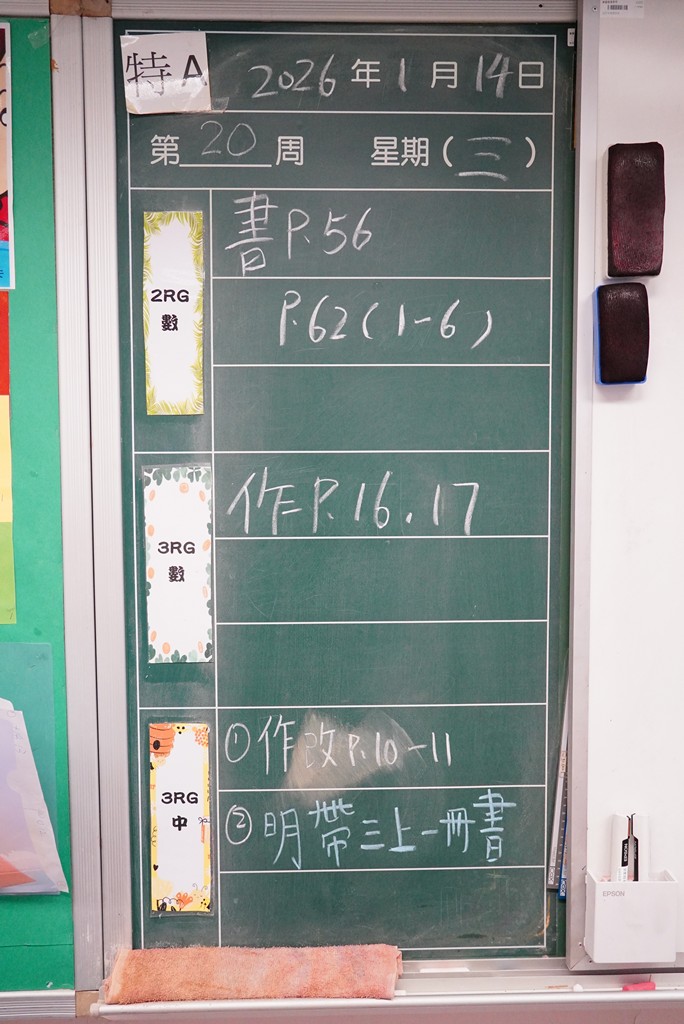 特A
2026年1月14日
第20周 星期(三)
2RG
數
書P.56
P.62(1-6)
3RG
數
作P.16.17
3RG
中
①作改P.10-11
②明帶三上一冊書
EPSON